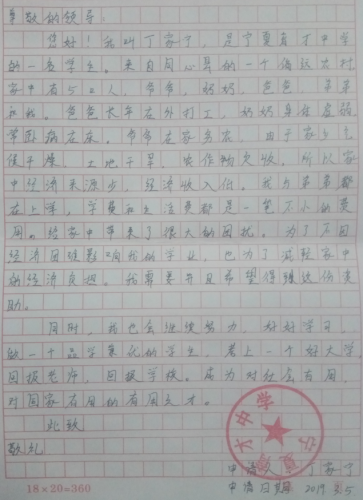 尊敬的领导：
您好！我叫丁家了，是宁夏育才中学
的一名学生。来自同心县的一个偏远农村
家中有5口人，爷爷，奶奶，爸爸，弟弟
和我。爸爸长年在外打工，奶奶身体虚弱
常年病在床。爷爷在家务农，由于家乡气
候干燥，土地干旱，农作物欠收，所以家
中经济来源少，经济收入低。我与弟弟都
在上学，学费和生活费都是一笔不小的费
用。给家中带来了很大的困扰。为了不因
经济困难影响我的学业，也为了减轻家中
的经济负担。我需要并且希望得到这份资
助。
同时，我也会继续努力，好好学习，
做一个品学兼优的学生，考上一个好大学
回报老师，回报学校。成为对社会有用，
对国家有用的有用之才。
此致
敬礼
申请人：丁家了
申请日期：2019
18×20=360